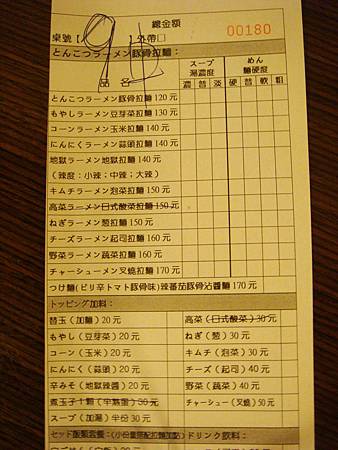 總金額
桌號【 】外帶□ 00180
とんこつラーメン豚骨拉麵：
品名
スープ 湯濃度
めん 麵硬度
濃 普 淡 硬 普 軟 粗
とんこつラーメン豚骨拉麵 120 元
もやしラーメン豆芽菜拉麵 130 元
コーンラーメン玉米拉麵 140 元
にんにくラーメン蒜頭拉麵 140 元
地獄ラーメン地獄拉麵 140 元
（辣度：小辣；中辣；大辣）
キムチラーメン泡菜拉麵 150 元
高菜ラーメン日式酸菜拉麵 150 元
ねぎラーメン葱拉麵 150 元
チーズラーメン起司拉麵 160 元
野菜ラーメン蔬菜拉麵 160 元
チャーシューメン叉燒拉麵 170 元
つけ麵(ピリ辛トマト豚骨味)辣番茄豚骨沾醬麵 170 元
トッピング加料：
替玉（加麵）20 元 高菜（日式酸菜）30 元
もやし（豆芽菜）20 元 ねぎ（葱）30 元
コーン（玉米）20 元 キムチ（泡菜）30 元
にんにく（蒜頭）20 元 チーズ（起司）40 元
辛みそ（地獄辣醬）20 元 野菜（蔬菜）40 元
煮玉子１顆（半熟蛋）30 元 チャーシュー（叉燒）50 元
スープ（加湯）半份 30 元
セット飯類套餐：(小份量搭配拉麵加點) ドリンク飲料：